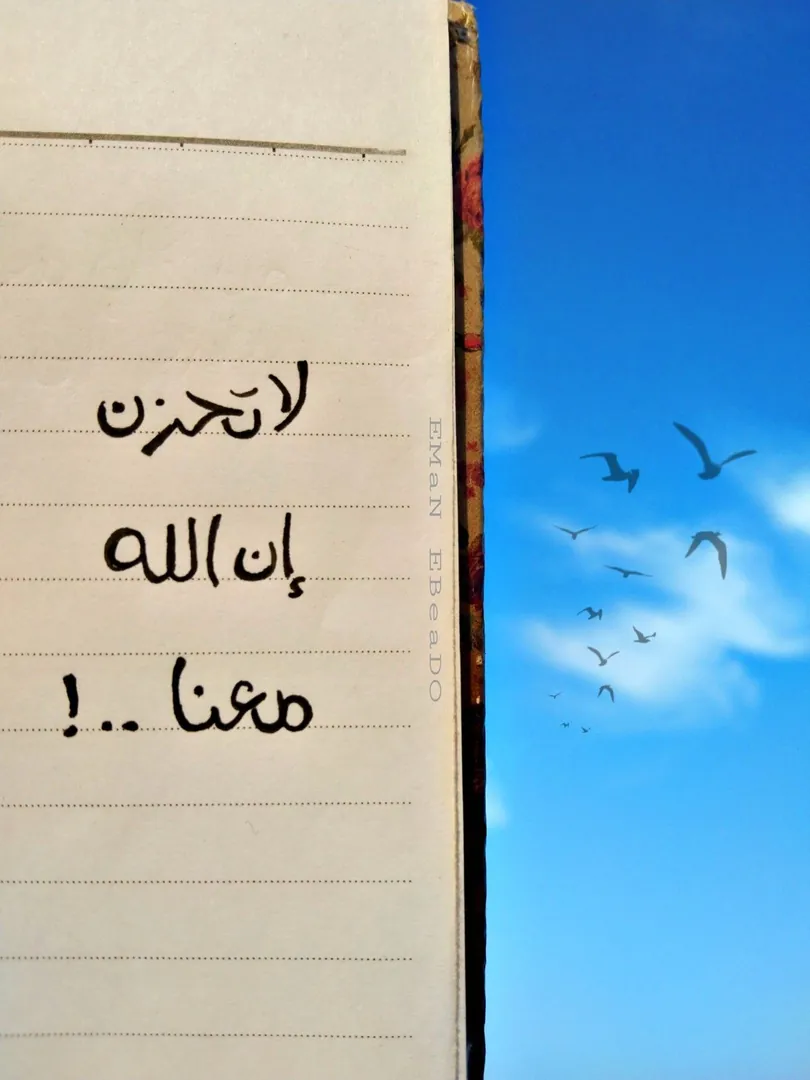 لا تحزن
إن الله
معنا ..!
EMaN EBeaDO